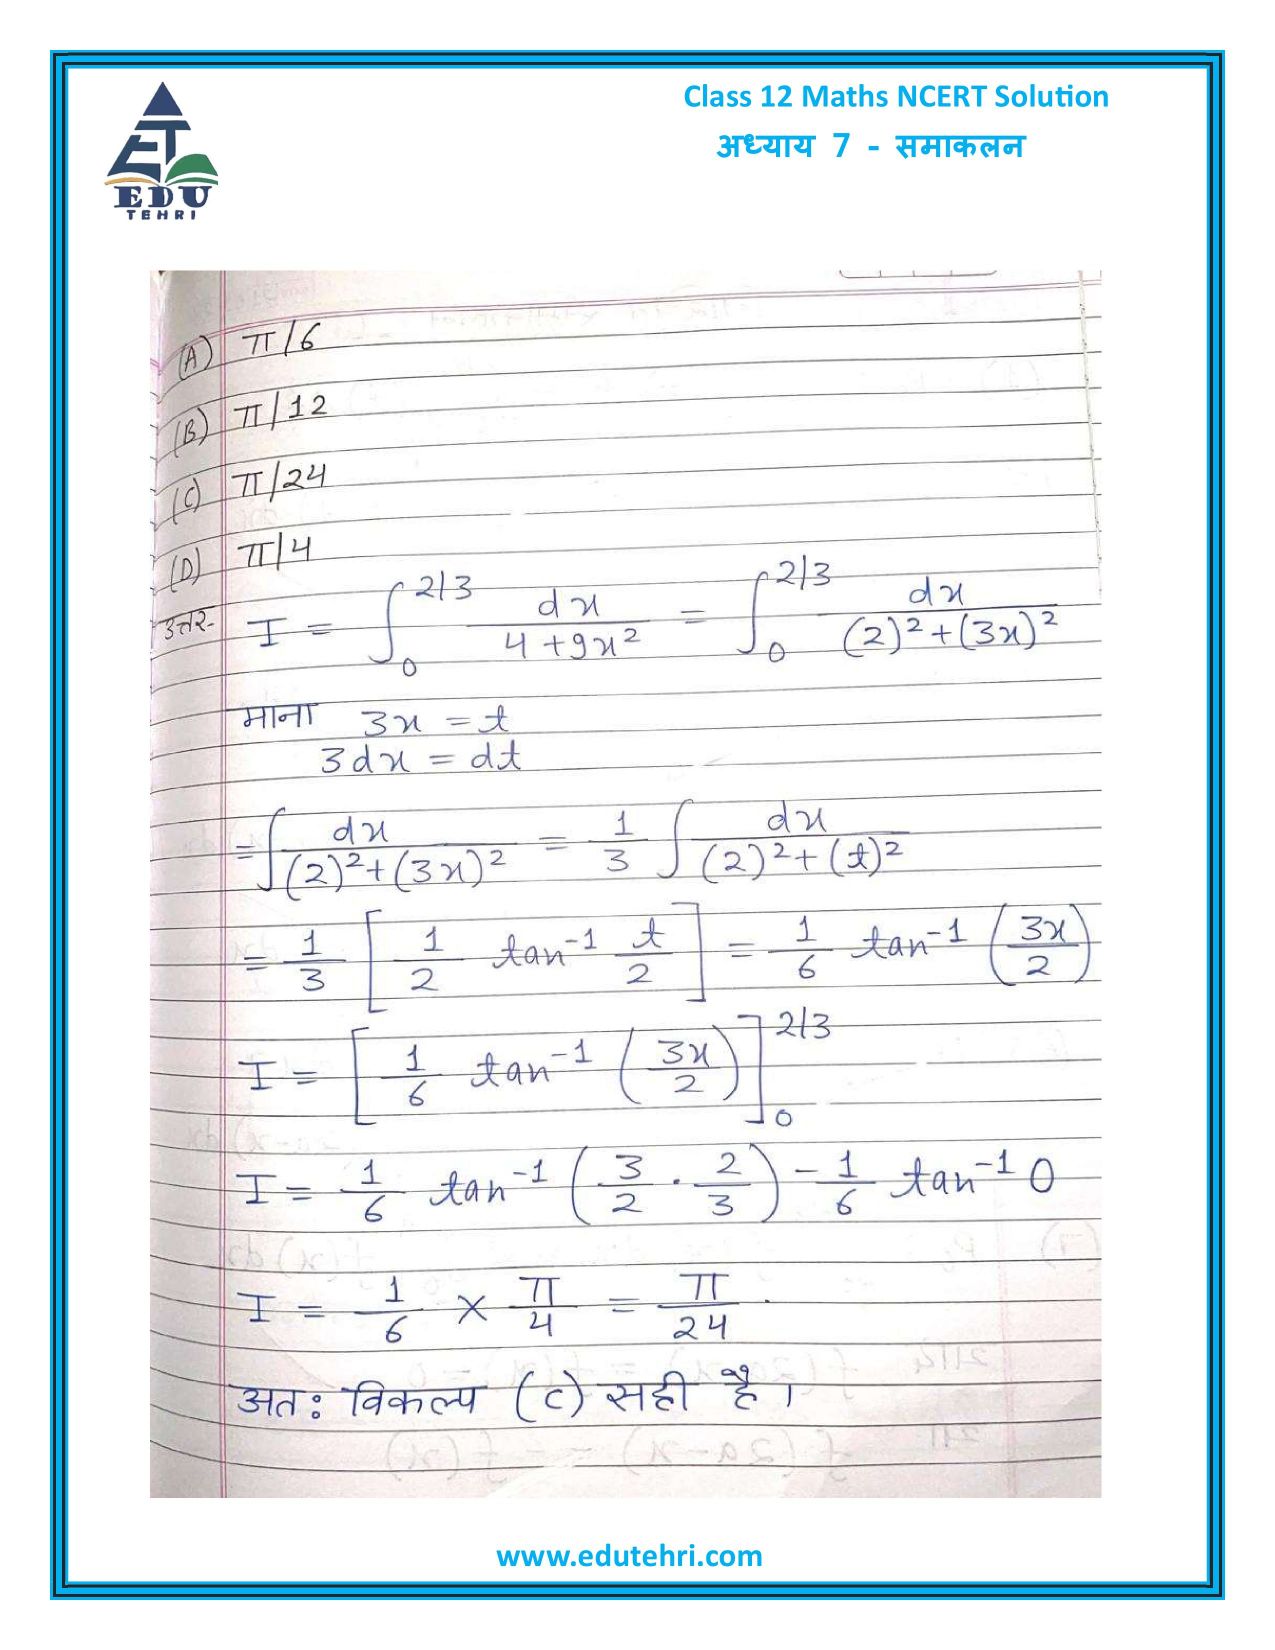 Class 12 Maths NCERT Solution
अध्याय 7 - समाकलन
EDU
TEHRI
(A) π/6
(B) π/12
(C) π/24
(D) π/4
उत्तर- I = ∫₀^{2/3} dx/(4+9x²) = ∫₀^{2/3} dx/((2)²+(3x)²)
माना 3x = t
3dx = dt
= ∫ dx/((2)²+(3x)²) = 1/3 ∫ dx/((2)²+(t)²)
= 1/3 [1/2 tan⁻¹ t/2] = 1/6 tan⁻¹ (3x/2)
I = [1/6 tan⁻¹ (3x/2)]₀^{2/3}
I = 1/6 tan⁻¹ (3/2 · 2/3) – 1/6 tan⁻¹ 0
I = 1/6 × π/4 = π/24.
अतः विकल्प (C) सही है।
www.edutehri.com